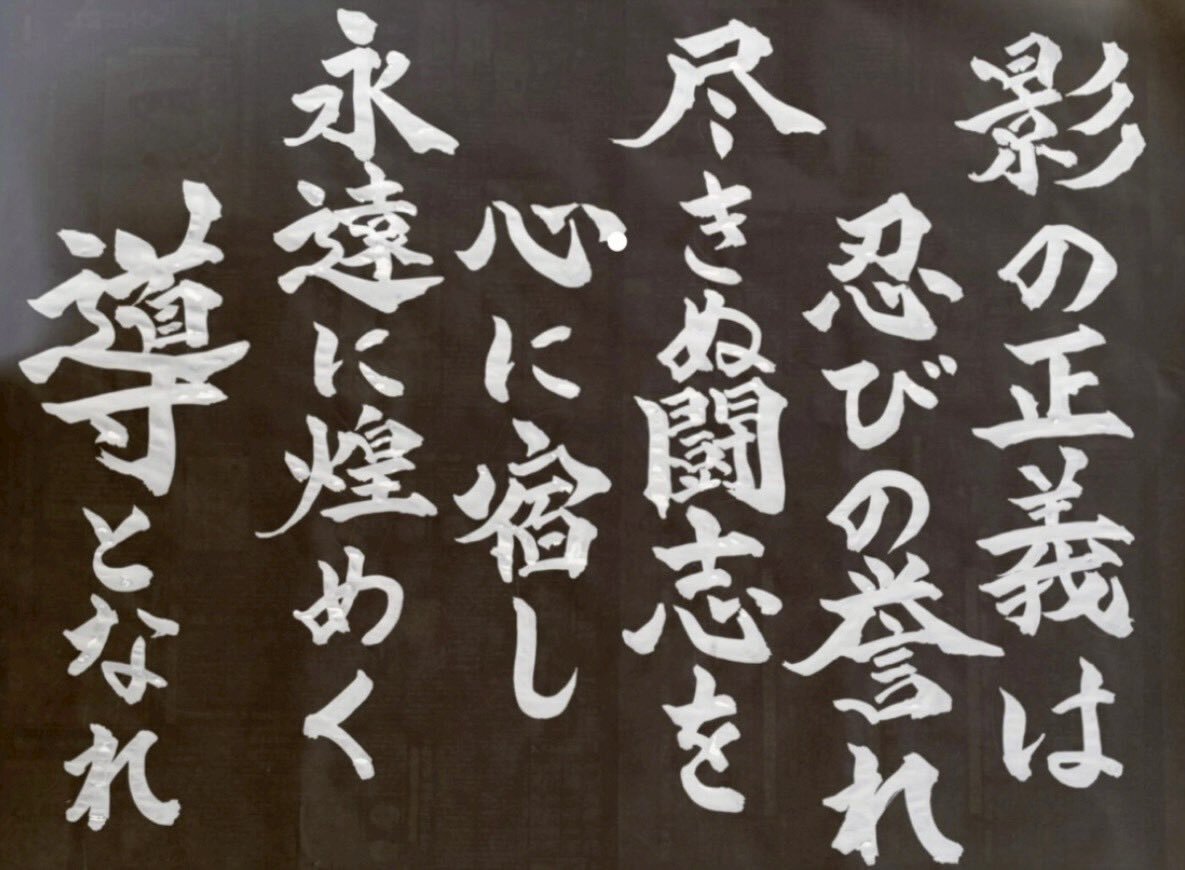 影の正義は
忍びの誉れ
尽きぬ闘志を
心に宿し
永遠に煌めく
導となれ